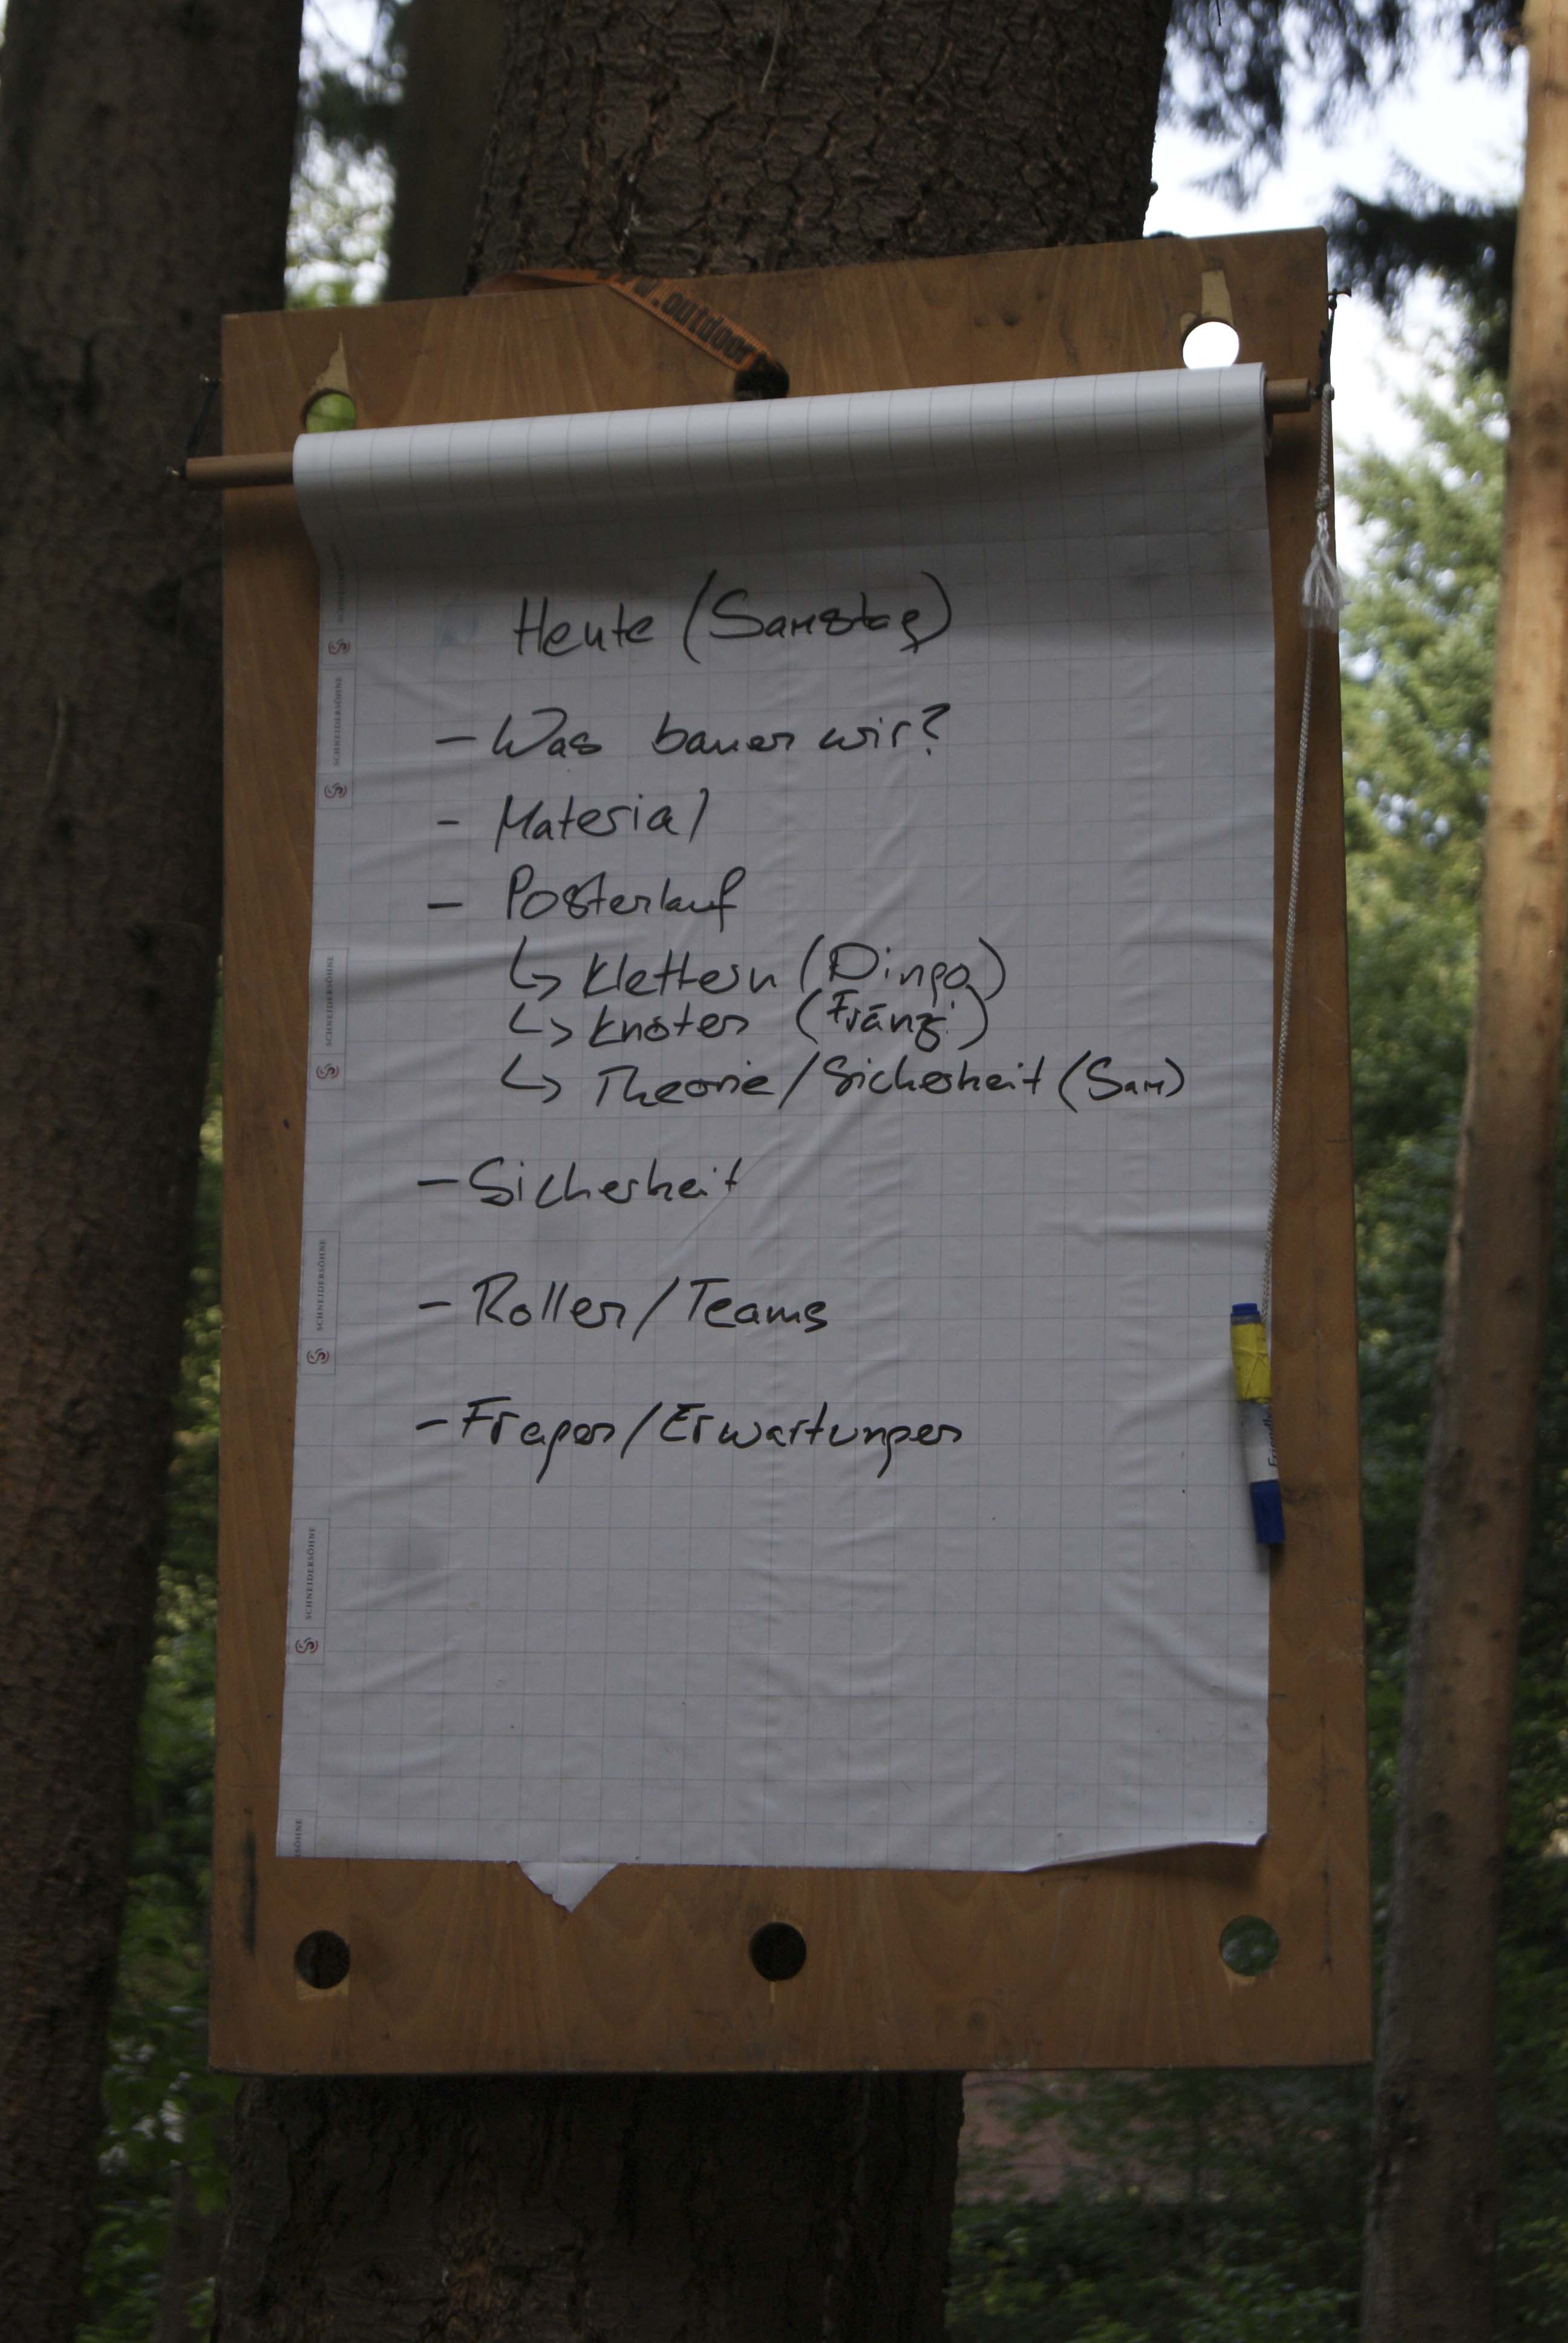 www.outdoor
Heute (Samstag)
- Was bauen wir?
- Material
- Postenlauf
↳ Klettern (Dingo)
↳ Knoten (Fränzi)
↳ Theorie/Sicherheit (Sam)
- Sicherheit
- Rollen/Teams
- Fragen/Erwartungen
SCHNEIDERSÖHNE
SCHNEIDERSÖHNE
SCHNEIDERSÖHNE
SCHNEIDERSÖHNE